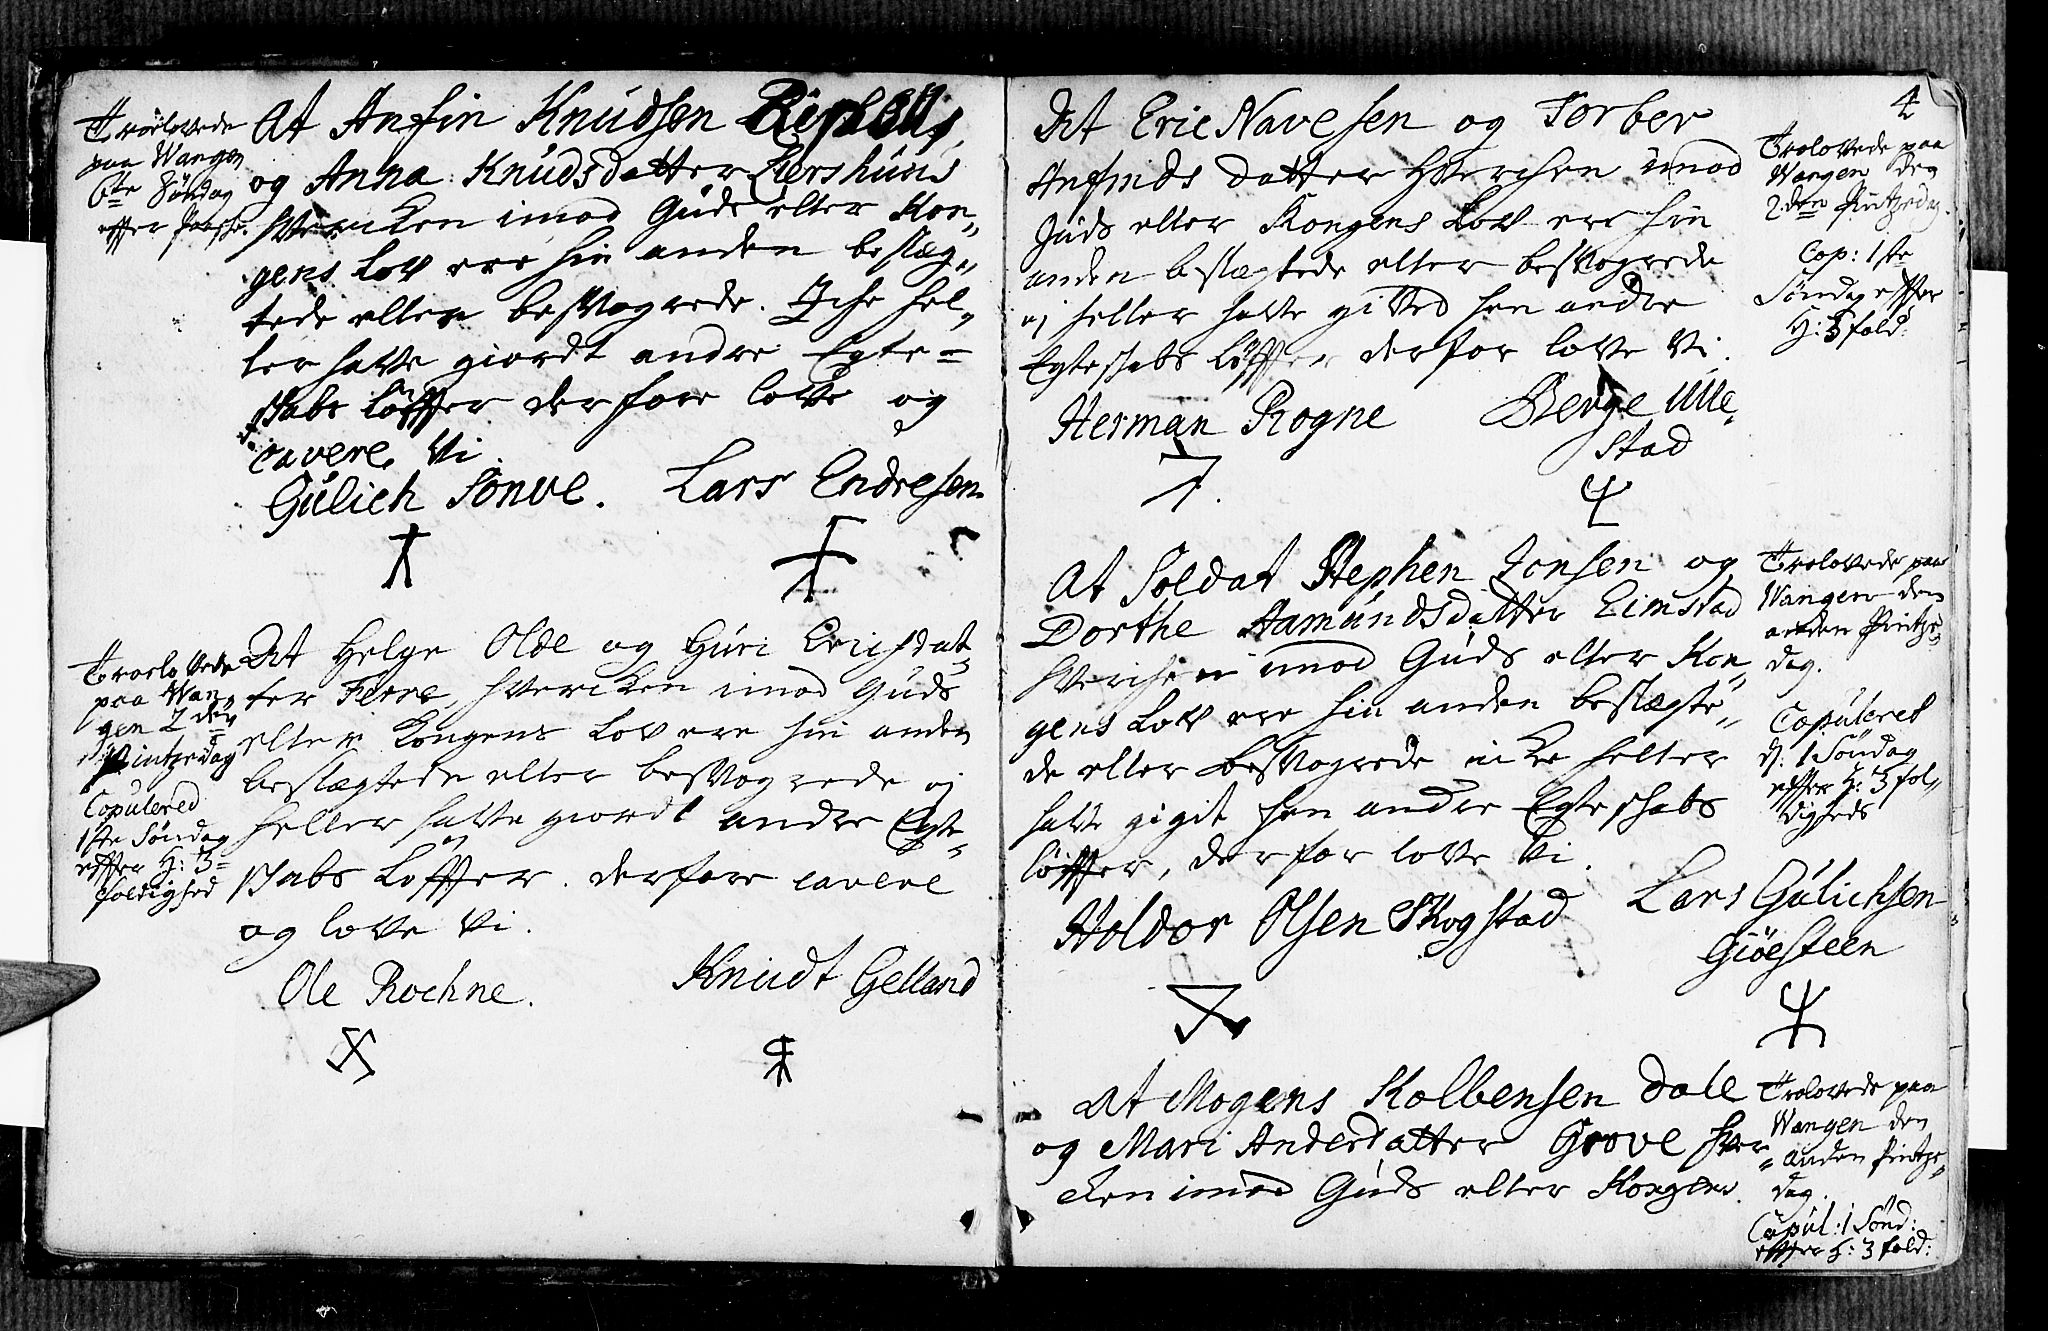 Troelovede
paa Wangen
6te Søndag
effter Paasche.
At Anfin Knudsen
og Anna Knudsdatter Kershuus
hvercken imod Guds eller Kon„
gens Lov ere hin anden beslæg„
tede eller besvogrede. Iche hel„
ler hafve giordt andre Egte=
skabs Løffter derfore lofve og
cavere Vi.
Gulich Sonve. Lars Endresen
Troelovede
paa Wan„
gen 2den
Pintzedag
Copulered
1ste Søndag
effter H: 3=
foldighed
At Helge Olde og Guri Erichsdat„
ter Flere, hvercken imod Guds
eller Kongens Lov ere hin anden
beslægtede eller besvogrede ej
heller hafve giordt andre Egte„
skabs Løffter. derfore cavere
og lofve Vi.
Ole Rochne. Knudt Gelland
4
At Eric Navesen og Torber
Anfinds datter hverchen imod
Guds eller Kongens Lov ere hin
anden beslægtede eller besvogrede
ej heller hafve gifved hen andre
Egteskabs Løffter derfor lofve Vi.
Herman Rogne Berge Ulle„
stad
Trolovede paa
Wangen den
2den Pintzedag.
Cop: 1ste
Søndag effter
H: 3fold:
At Soldat Stephen Jonsen og
Dorthe Aamundsdatter Eimstad
hverchen imod Guds eller Kon„
gens Lov ere hin anden beslægte„
de eller besvogrede icke heller
hafve gigit hen andre Egteskabs
løffter, derfor lofve Vi.
Holdor Olsen Skogstad Lars Gulichsen
Giøesteen
Trolovede paa
Wangen den
anden Pintze„
dag.
Copuleret
d: 1 Søndag
effter H: 3fol„
digheds
At Mogens Kolbensen Dale
og Mari Andersdatter Grove hver„
cken imod Guds eller Kongens
Trolovede paa
Wangen den
anden Pintze„
dag.
Copul: 1 Sønd:
effter H: 3fold: